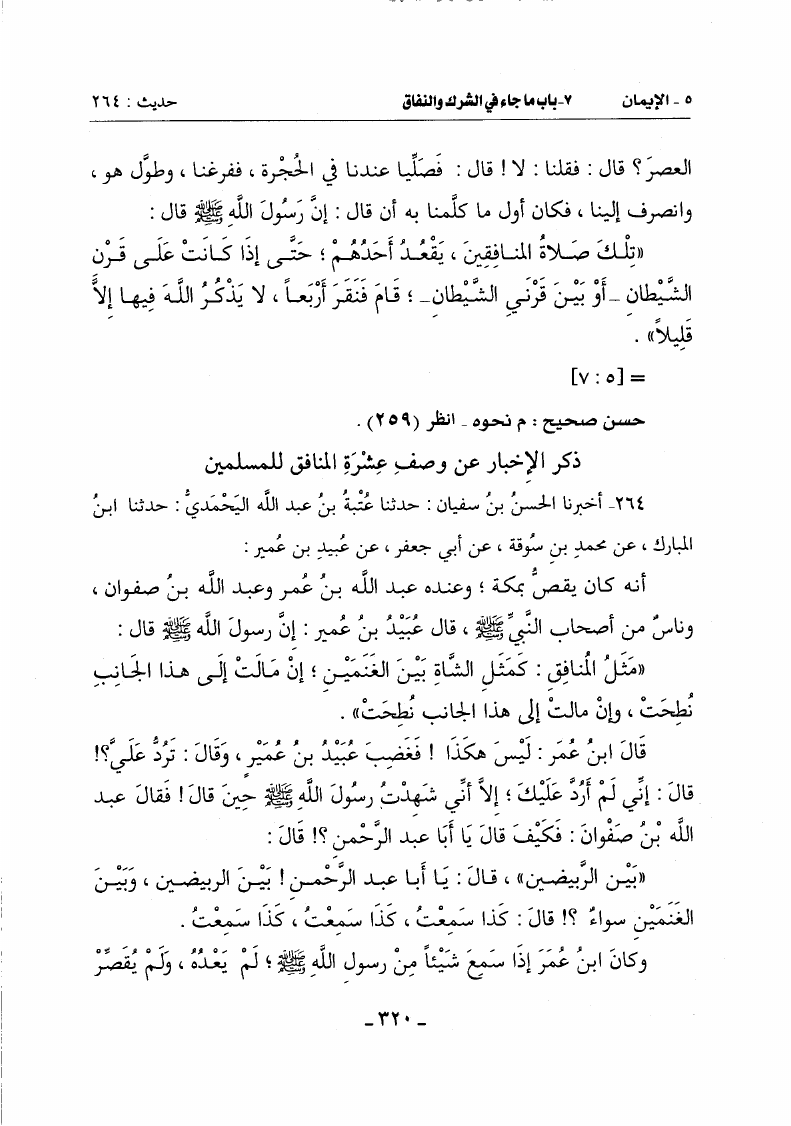 ٥ ـ الإيمان ٧-باب ما جاء في الشرك والنفاق حديث : ٢٦٤
العصرَ ؟ قال : فقلنا : لا ! قال : فَصَلِّيا عندنا في الحُجْرة ، ففرغنا ، وطوَّل هو ،
وانصرف إلينا ، فكان أول ما كلَّمنا به أن قال : إنَّ رَسُولَ اللَّهِ ﷺ قال :
«تِلْكَ صَلاةُ المنافِقِينَ ، يَقْعُدُ أَحَدُهُمْ ؛ حَتَّى إذَا كَانَتْ عَلَى قَرْنِ
الشَّيْطانِ ـ أَوْ بَيْنَ قَرْنَيِ الشَّيْطانِ ـ ؛ قَامَ فَنَقَرَ أَرْبَعاً ، لا يَذْكُرُ اللَّهَ فِيها إلاَّ
قَلِيلاً» .
= [٥ : ٧]
حسن صحيح : م نحوه ـ انظر (٢٥٩) .
ذكر الإخبار عن وصفِ عِشْرَةِ المنافق للمسلمين
٢٦٤ـ أخبرنا الحسنُ بنُ سفيان : حدثنا عُتْبةُ بنُ عبد الله اليَحْمَديُّ : حدثنا ابنُ
المبارك ، عن محمدِ بنِ سُوقة ، عن أبي جعفر ، عن عُبيدِ بنِ عُميرٍ :
أنه كان يقصُّ بمكة ؛ وعنده عبد الله بنُ عُمر وعبد الله بنُ صفوان ،
وناسٌ من أصحاب النَّبيِّ ﷺ ، قال عُبَيْدُ بنُ عُميرٍ : إنَّ رسولَ الله ﷺ قال :
«مَثَلُ المُنافِقِ : كَمَثَلِ الشَّاةِ بَيْنَ الغَنَمَيْنِ ؛ إنْ مَالَتْ إلَى هذا الجَانِبِ
نُطِحَتْ ، وإنْ مالتْ إلى هذا الجانب نُطِحَتْ» .
قَالَ ابنُ عُمَر : لَيْسَ هكَذَا ! فَغَضِبَ عُبَيْدُ بنُ عُمَيْرٍ ، وَقَالَ : تَرُدُّ عَلَيَّ؟!
قالَ : إنِّي لَمْ أَرُدَّ عَلَيْكَ ؛ إلاَّ أنِّي شَهِدْتُ رسُولَ اللَّهِ ﷺ حِينَ قَالَ ! فقالَ عبد
الله بْنُ صَفْوانَ : فَكَيْفَ قالَ يَا أَبَا عبد الرَّحْمنِ ؟! قَالَ :
«بَيْن الرَّبيضينِ» ، قَالَ : يَا أبا عبد الرَّحْمنِ ! بَيْنَ الربيضينِ ، وَبَيْنَ
الغَنَمَيْنِ سواءٌ ؟! قالَ : كَذا سَمِعتُ ، كَذَا سَمِعتُ ، كَذَا سَمِعتُ .
وكانَ ابنُ عُمَرَ إذَا سَمِعَ شَيْئاً مِنْ رسول اللَّهِ ﷺ ؛ لَمْ يَعْدُهُ ، ولَمْ يُقَصِّرْ
ـ ٣٢٠ ـ